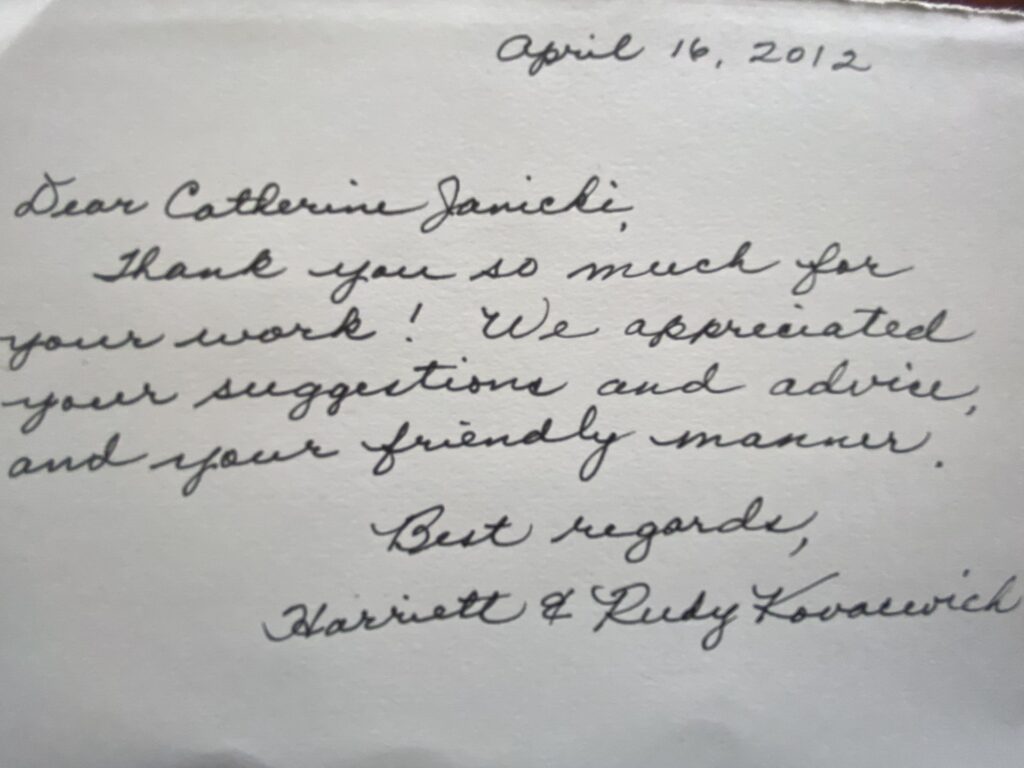 April 16, 2012
Dear Catherine Janicki,
Thank you so much for
your work! We appreciated
your suggestions and advice,
and your friendly manner.
Best regards,
Harriett & Rudy Kovacevich